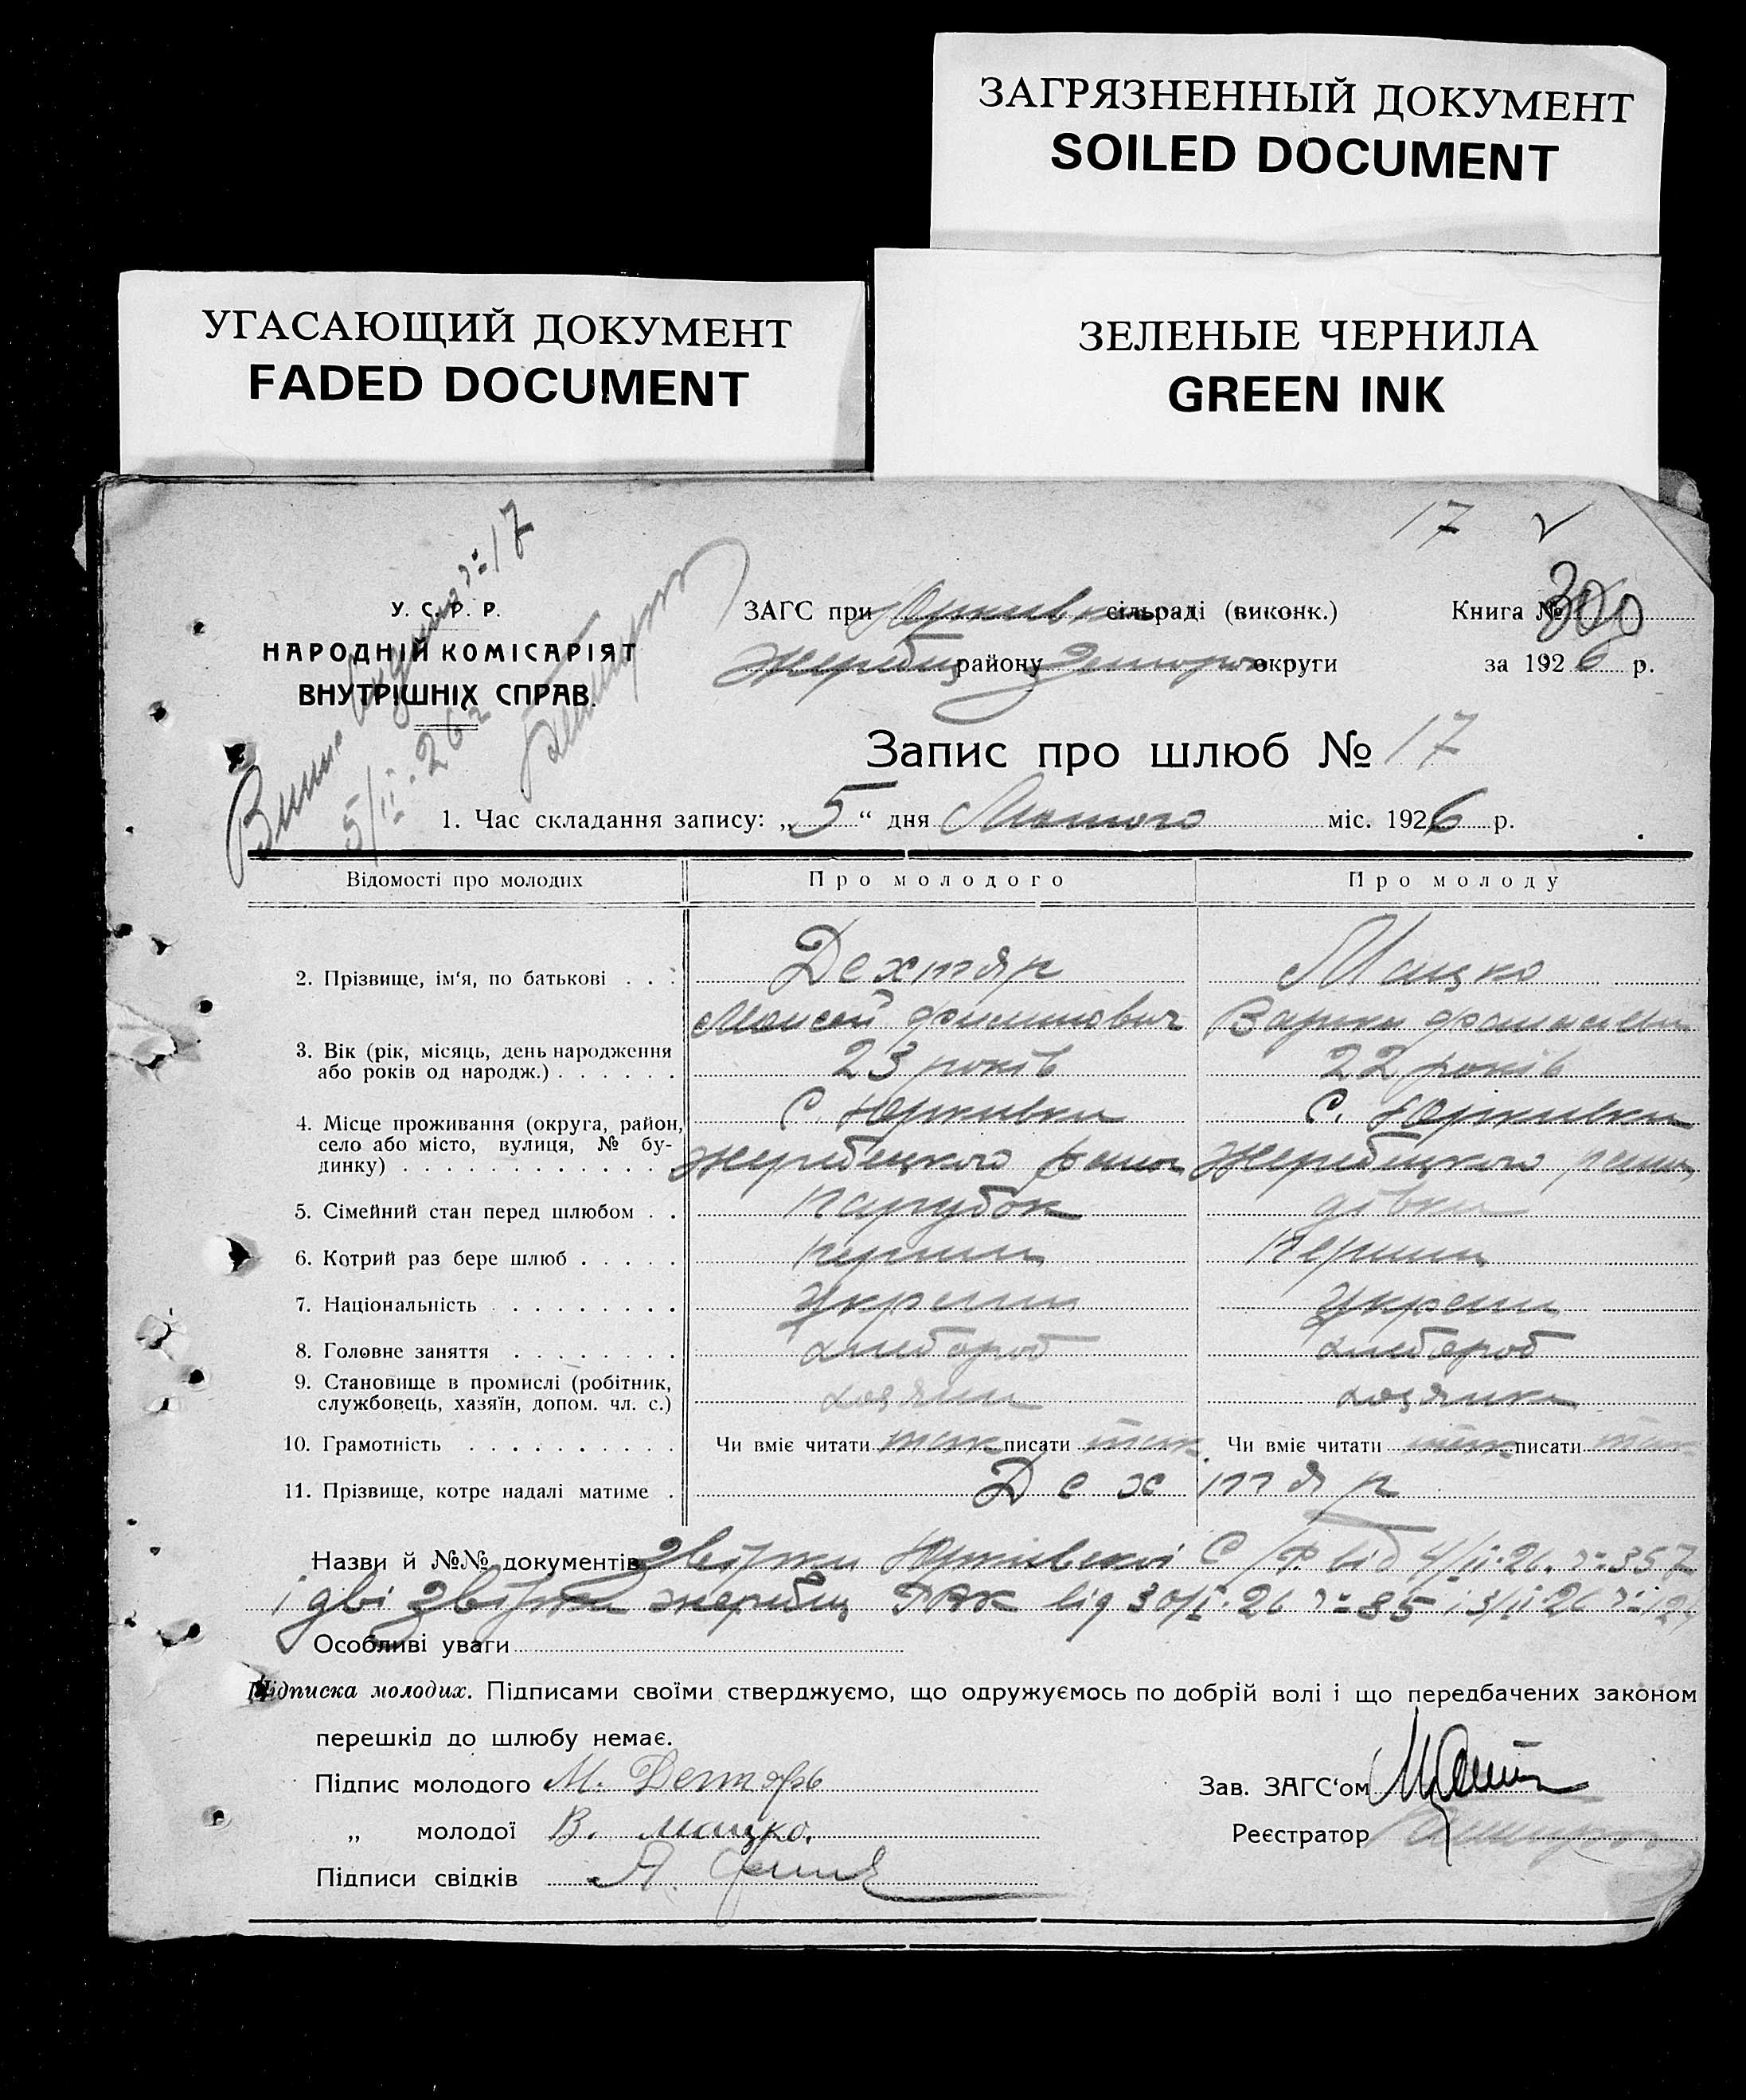 ЗАГРЯЗНЕННЫЙ ДОКУМЕНТ
SOILED DOCUMENT
УГАСАЮЩИЙ ДОКУМЕНТ
FADED DOCUMENT
ЗЕЛЕНЫЕ ЧЕРНИЛА
GREEN INK
17
№17
5/II-26
У. С. Р. Р.
НАРОДНІЙ КОМІСАРІЯТ
ВНУТРІШНІХ СПРАВ.
ЗАГС при Юрківск сільраді (виконк.) Книга №
Жеребец району Запорож округи за 1926 р.
Запис про шлюб № 17
1. Час складання запису: „5“ дня Лютого міс. 1926 р.
Відомості про молодих Про молодого Про молоду
2. Прізвище, ім'я, по батькові . . . Дехтяр Мацко
Мойсей Варка
3. Вік (рік, місяць, день народження або років од народж.) . . . . . . 23 років 22 років
4. Місце проживання (округа, район, село або місто, вулиця, № будинку) . . . . . . . . . . . . С. Юрківка С. Юрківка
Жеребецкого район Жеребецкого район
5. Сімейний стан перед шлюбом . . парубок дівка
6. Котрий раз бере шлюб . . . . . перший перший
7. Національність . . . . . . . . . Україн Україн
8. Головне заняття . . . . . . . . хлібороб хлібороб
9. Становище в промислі (робітник, службовець, хазяїн, допом. чл. с.) хозяин хозяика
10. Грамотність . . . . . . . . . . Чи вміє читати так писати так Чи вміє читати так писати так
11. Прізвище, котре надалі матиме . Дехтяр
Назви й №№ документів звірки Юрківскої С/Р. від 4/II-26. №357
і дві звірки жеребец від 30/I-26 №85 і 3/II-26
Особливі уваги
Підписка молодих. Підписами своїми стверджуємо, що одружуємось по добрій волі і що передбачених законом
перешкід до шлюбу немає.
Підпис молодого М. Дехтярь Зав. ЗАГС'ом
„ молодої В. Мацко. Реєстратор
Підписи свідків А.